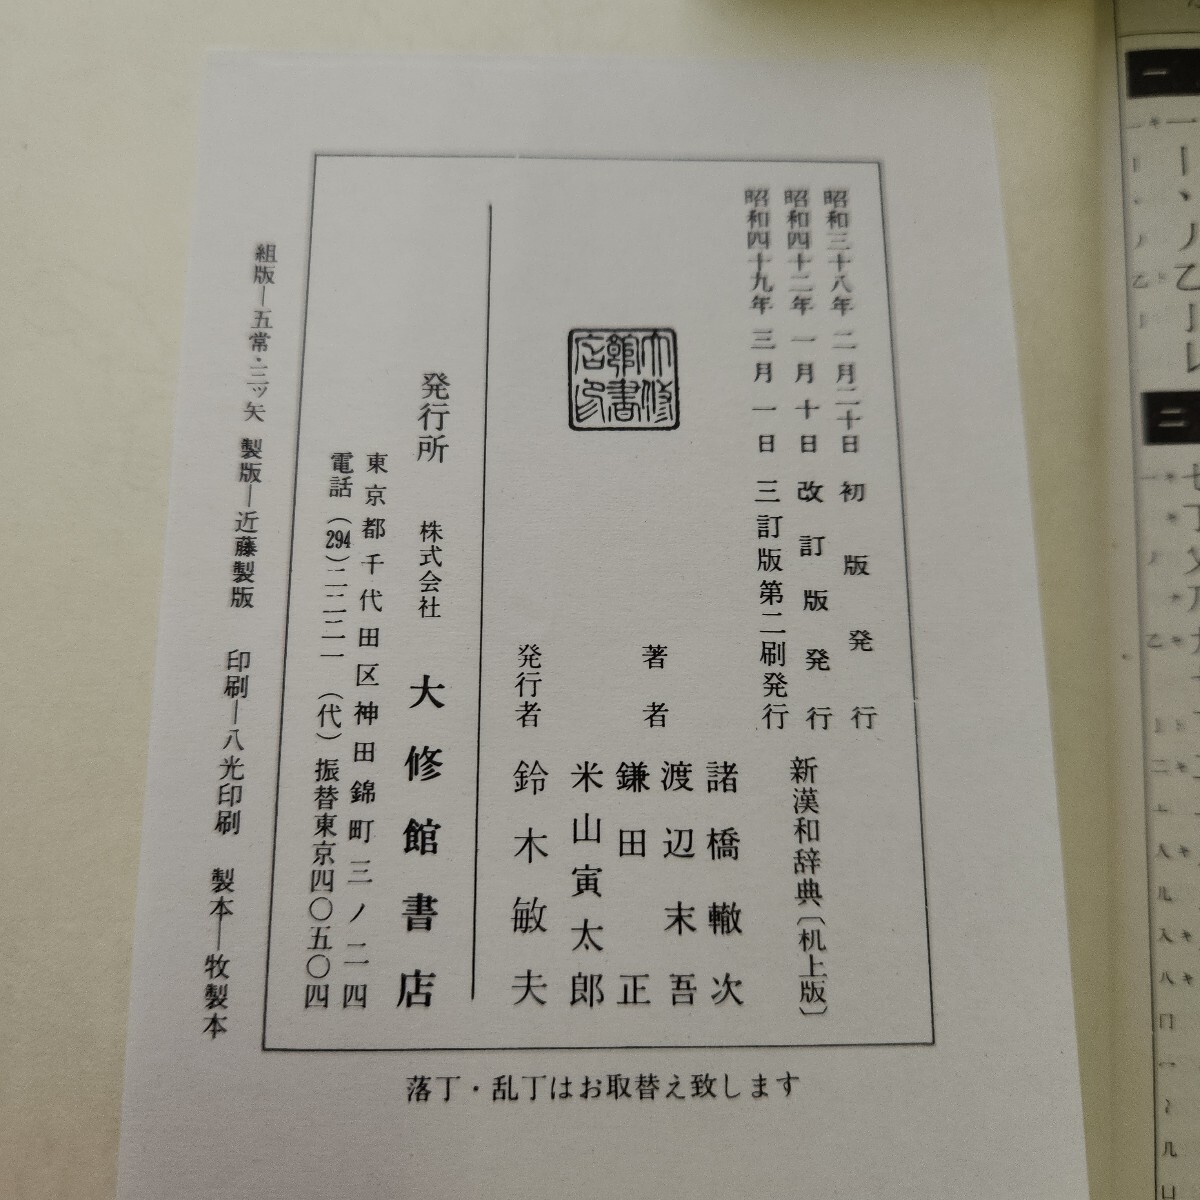 昭和三十八年 二月二十日 初版発行
昭和四十二年 一月十日 改訂版発行
昭和四十九年 三月一日 三訂版第二刷発行
新漢和辞典〔机上版〕
著者
諸橋轍次
渡辺末吾
鎌田正
米山寅太郎
発行者 鈴木敏夫
大修館書店印
発行所 株式会社 大修館書店
東京都千代田区神田錦町三ノ二四
電話(294)二二二一(代)振替東京四〇五〇四
組版―五常・三ッ矢 製版―近藤製版 印刷―八光印刷 製本―牧製本
落丁・乱丁はお取替え致します
一
二